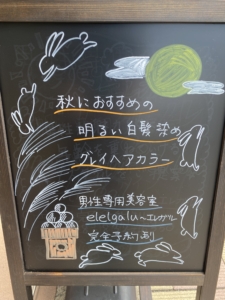 秋におすすめの
明るい白髪染め
グレイヘアカラー
男性専用美容室
elelgalu〜エレガル
完全予約あり